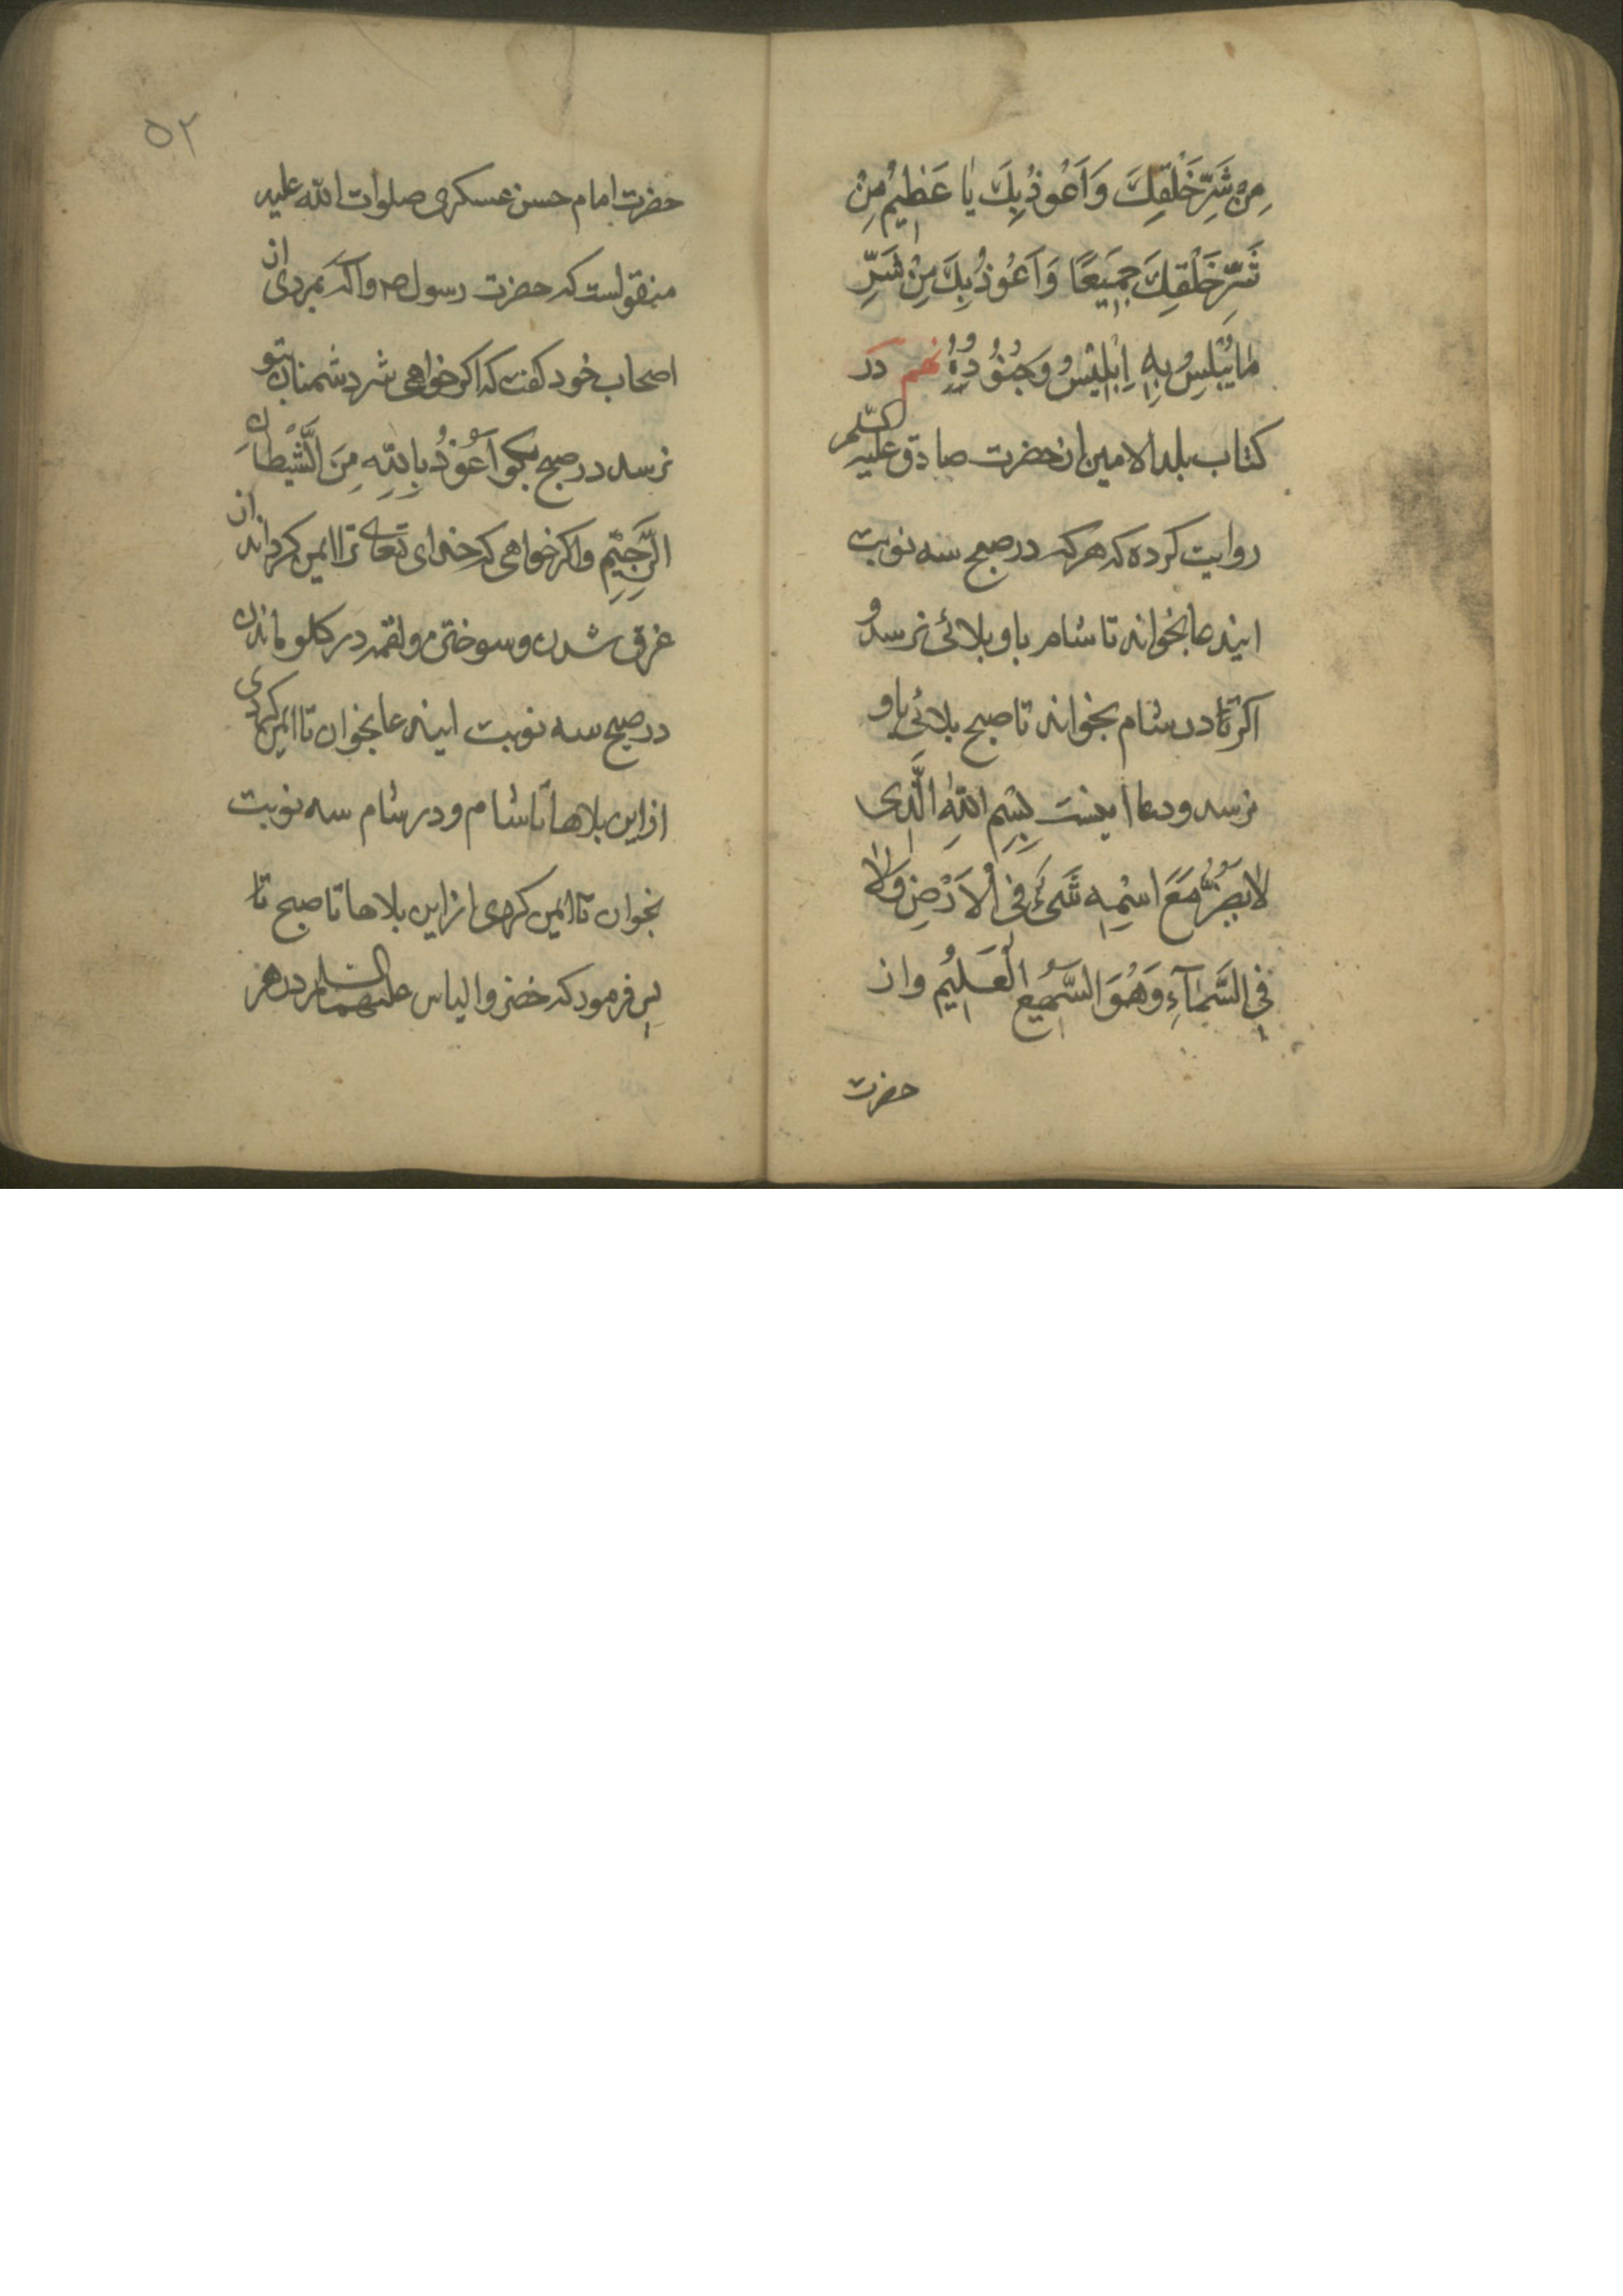 مِنْ شَرِّ خَلْقِكَ وَاَعُوذُ بِكَ یٰا عَظِیْمُ مِنْ
شَرِّ خَلْقِكَ جَمِیْعًا وَاَعُوذُ بِكَ مِنْ شَرِّ
مٰا یُبْلِسُ بِهِ اِبْلِیْسُ وَجُنُوُدُهُ نهم دَر
كتاب بلد الامین از حضرت صادق علیه السّلم
روایت كرده كه هركه در صبح سه نوبت
ایندعا بخواند تا شام باو بلائی نرسد و
اكر تا در شام بخواند تا صبح بلائی باو
نرسد و دعا اینست بِسْمِ اللّٰهِ الَّذِی
لا یَضُرُّ مَعَ اسْمِهِ شَیْءٌ فِی الْاَرْضِ وَلاٰ
فِی السَّمٰآءِ وَهُوَ السَّمِیْعُ الْعَلِیْمُ واز
حضرت
۵۲
حضرت امام حسن عسكری صلوات اللّه علیه
منقولست كه حضرت رسول ص واله بمردی از
اصحاب خود كفت كه اكر خواهی شر دشمنان بتو
نرسد در صبح بكو اَعُوْذُ بِاللّٰهِ مِنَ الشَّیْطٰانِ
الرَّجِیْمِ و اكر خواهی كه خدای تعالی ترا ایمن كرداند از
غرق شدن و سوختن و لقمه در كلو ماندن
در صبح سه نوبت ایندعا بخوان تا ایمن كردی
از این بلاها تا شام و در شام سه نوبت
بخوان تا ایمن كردی از این بلاها تا صبح تا
پس فرمود كه خضر و الیاس علیهما السلم در هر